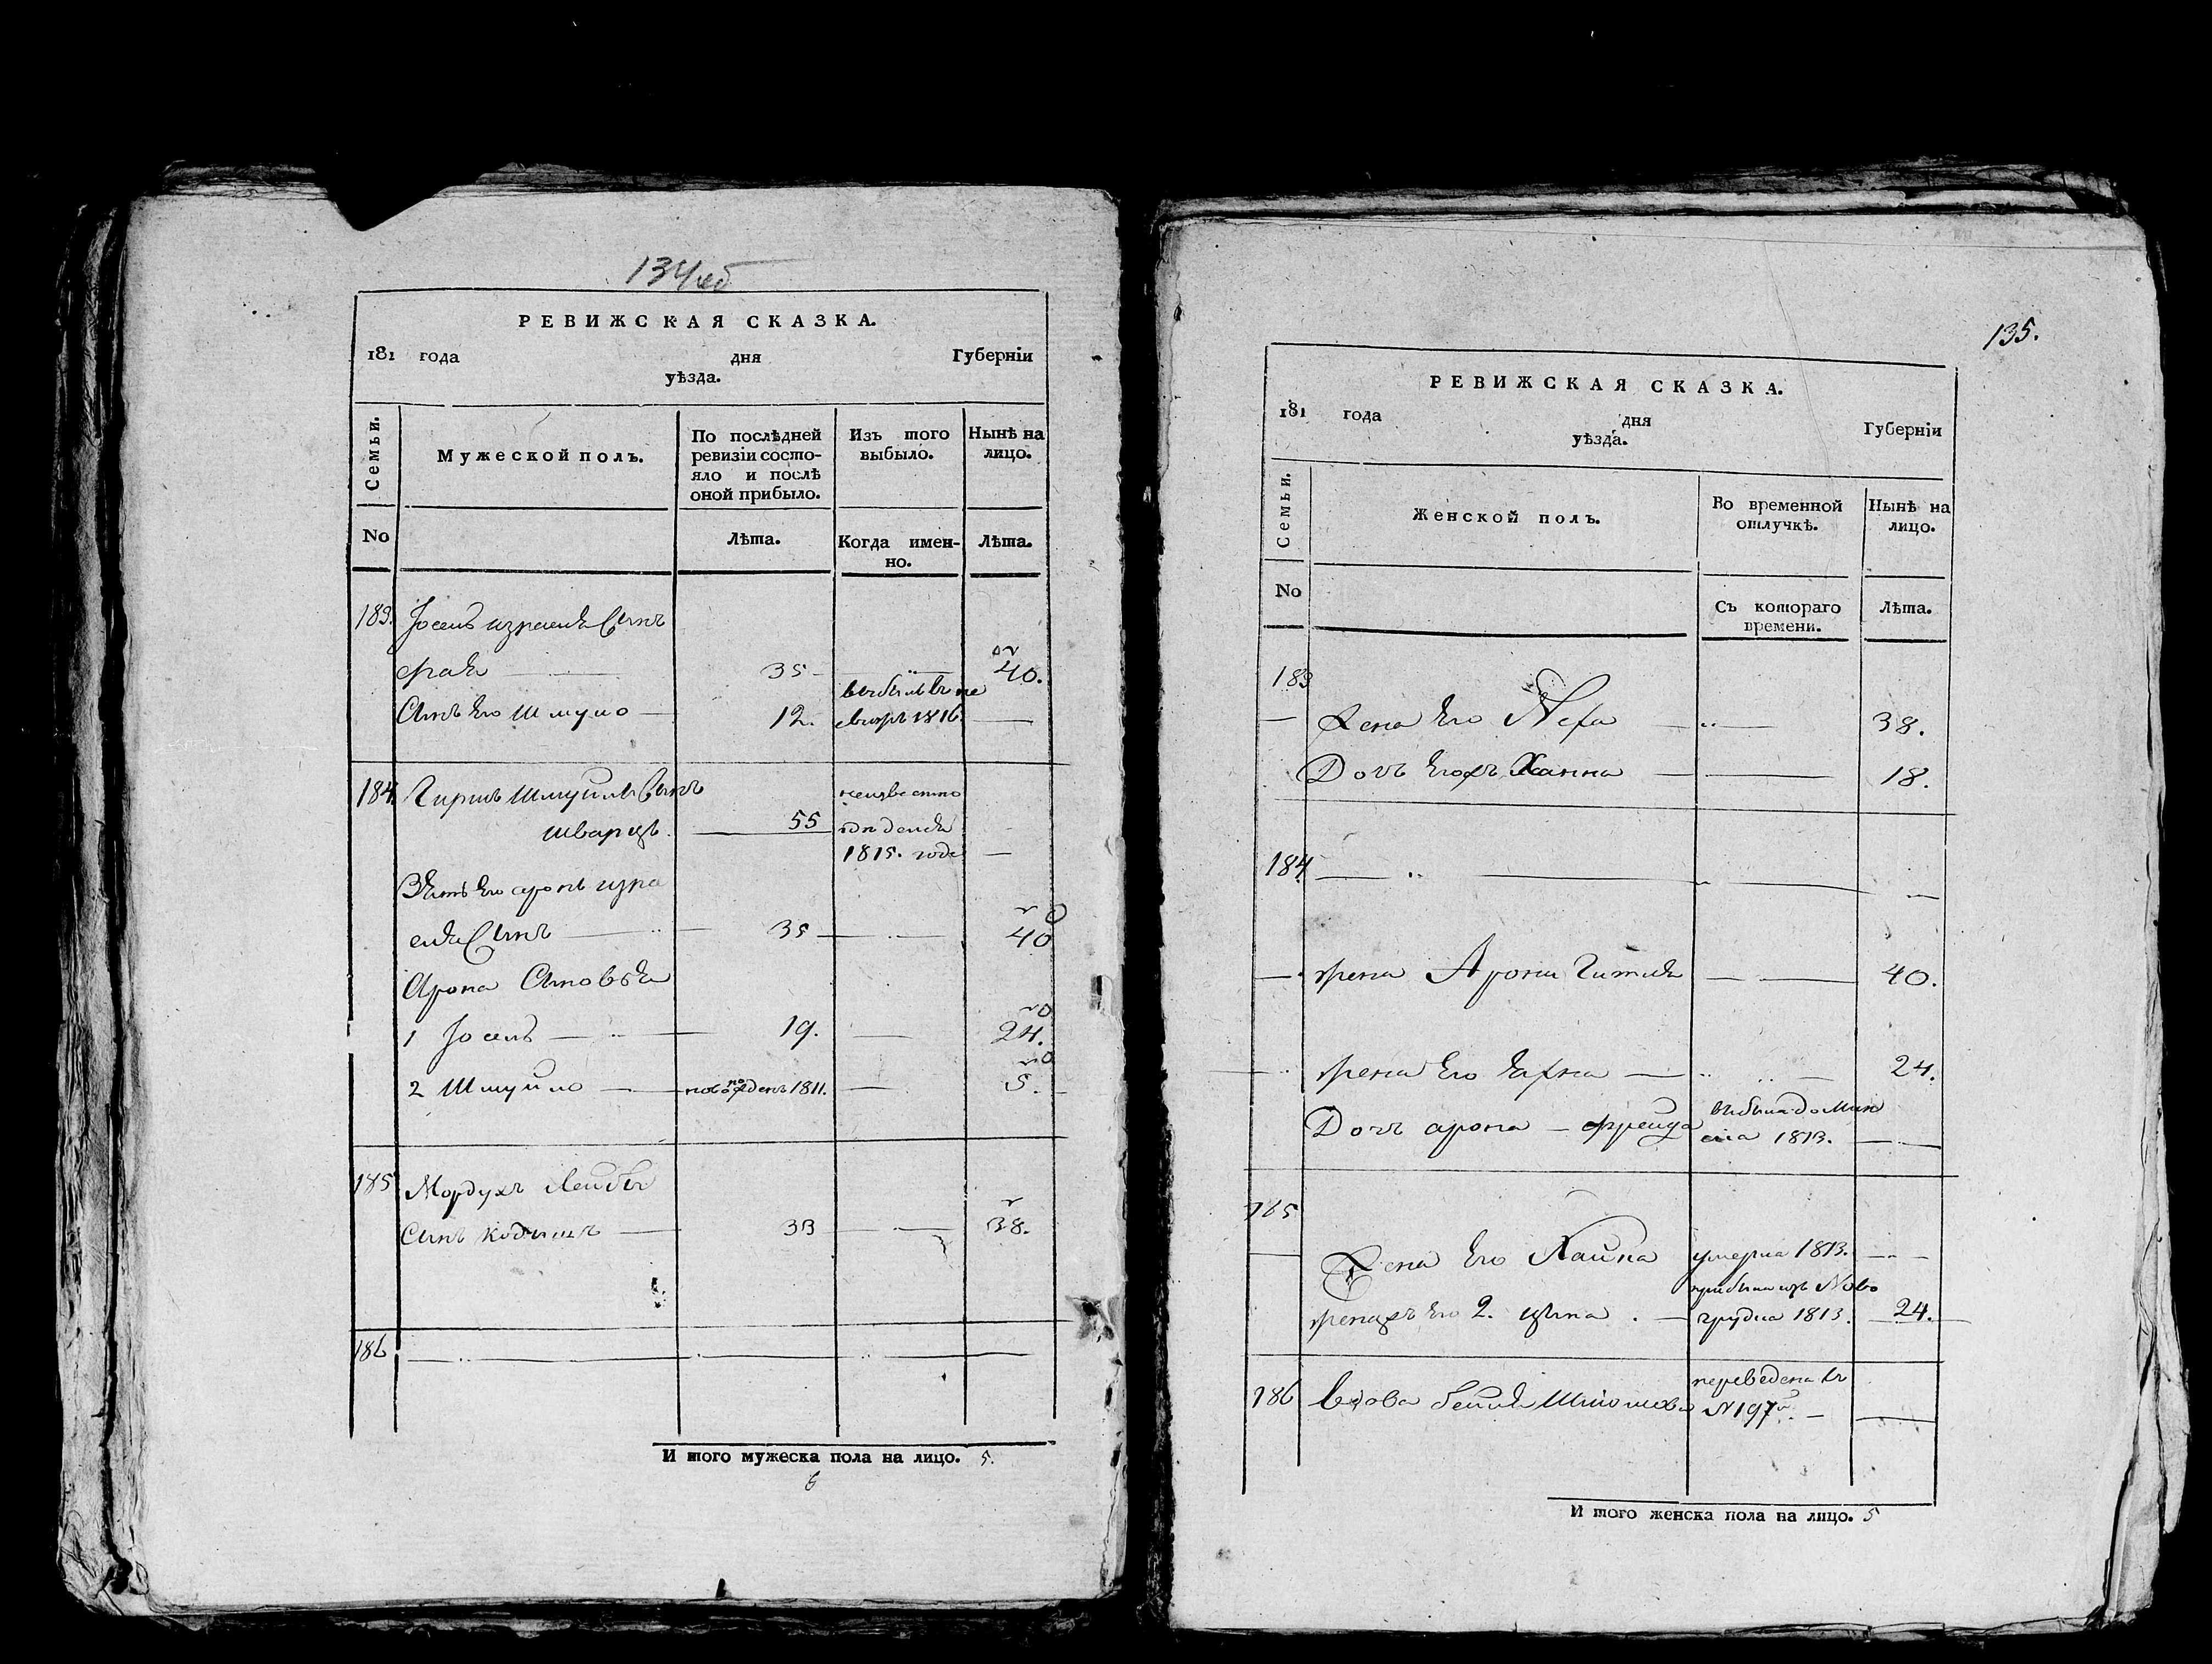 134об
РЕВИЖСКАЯ СКАЗКА.
181 года дня Губернїи
уѣзда.
Семьи.
Мужеской полъ.
По послѣдней ревизїи состо-
яло и послѣ
оной прибыло.
Изъ того
выбыло.
Нынѣ на
лицо.
No
Лѣта.
Когда имен-
но.
Лѣта.
183. Іосель израеля Сынъ
35 40.
Сынъ Его Шмуло 12. 1816
184 Гиршъ Шмуйлы Сынъ неизвестно
шварцъ. 55
1815. года
Зять Его аронъ изра
еля Сынъ 35 40
Арона Сыновья
1 Іосель 19. 24.
2 Шмуйло новорожденъ 1811. 5.
185 Мордухъ Лейбы
Сынъ кодышъ 33 38.
186
И того мужеска пола на лицо. 5.
6
135.
РЕВИЖСКАЯ СКАЗКА.
181 года дня Губернїи
уѣзда.
Семьи.
Женской полъ.
Во временной
отлучкѣ.
Нынѣ на
лицо.
No
Съ котораго
времени.
Лѣта.
183
Жена Его Неха 38.
Дочь Ханна 18.
184
жена Арона Гитля 40.
жена Его 24.
Дочь арона фрейда выбыла до Мин
ска 1813.
185
Жена Его Хайка умерла 1813.
прибыла изъ Ново
Его 2. цына грудка 1813. 24.
186 Вдова бейля переведена въ
N 197
И того женска пола на лицо. 5